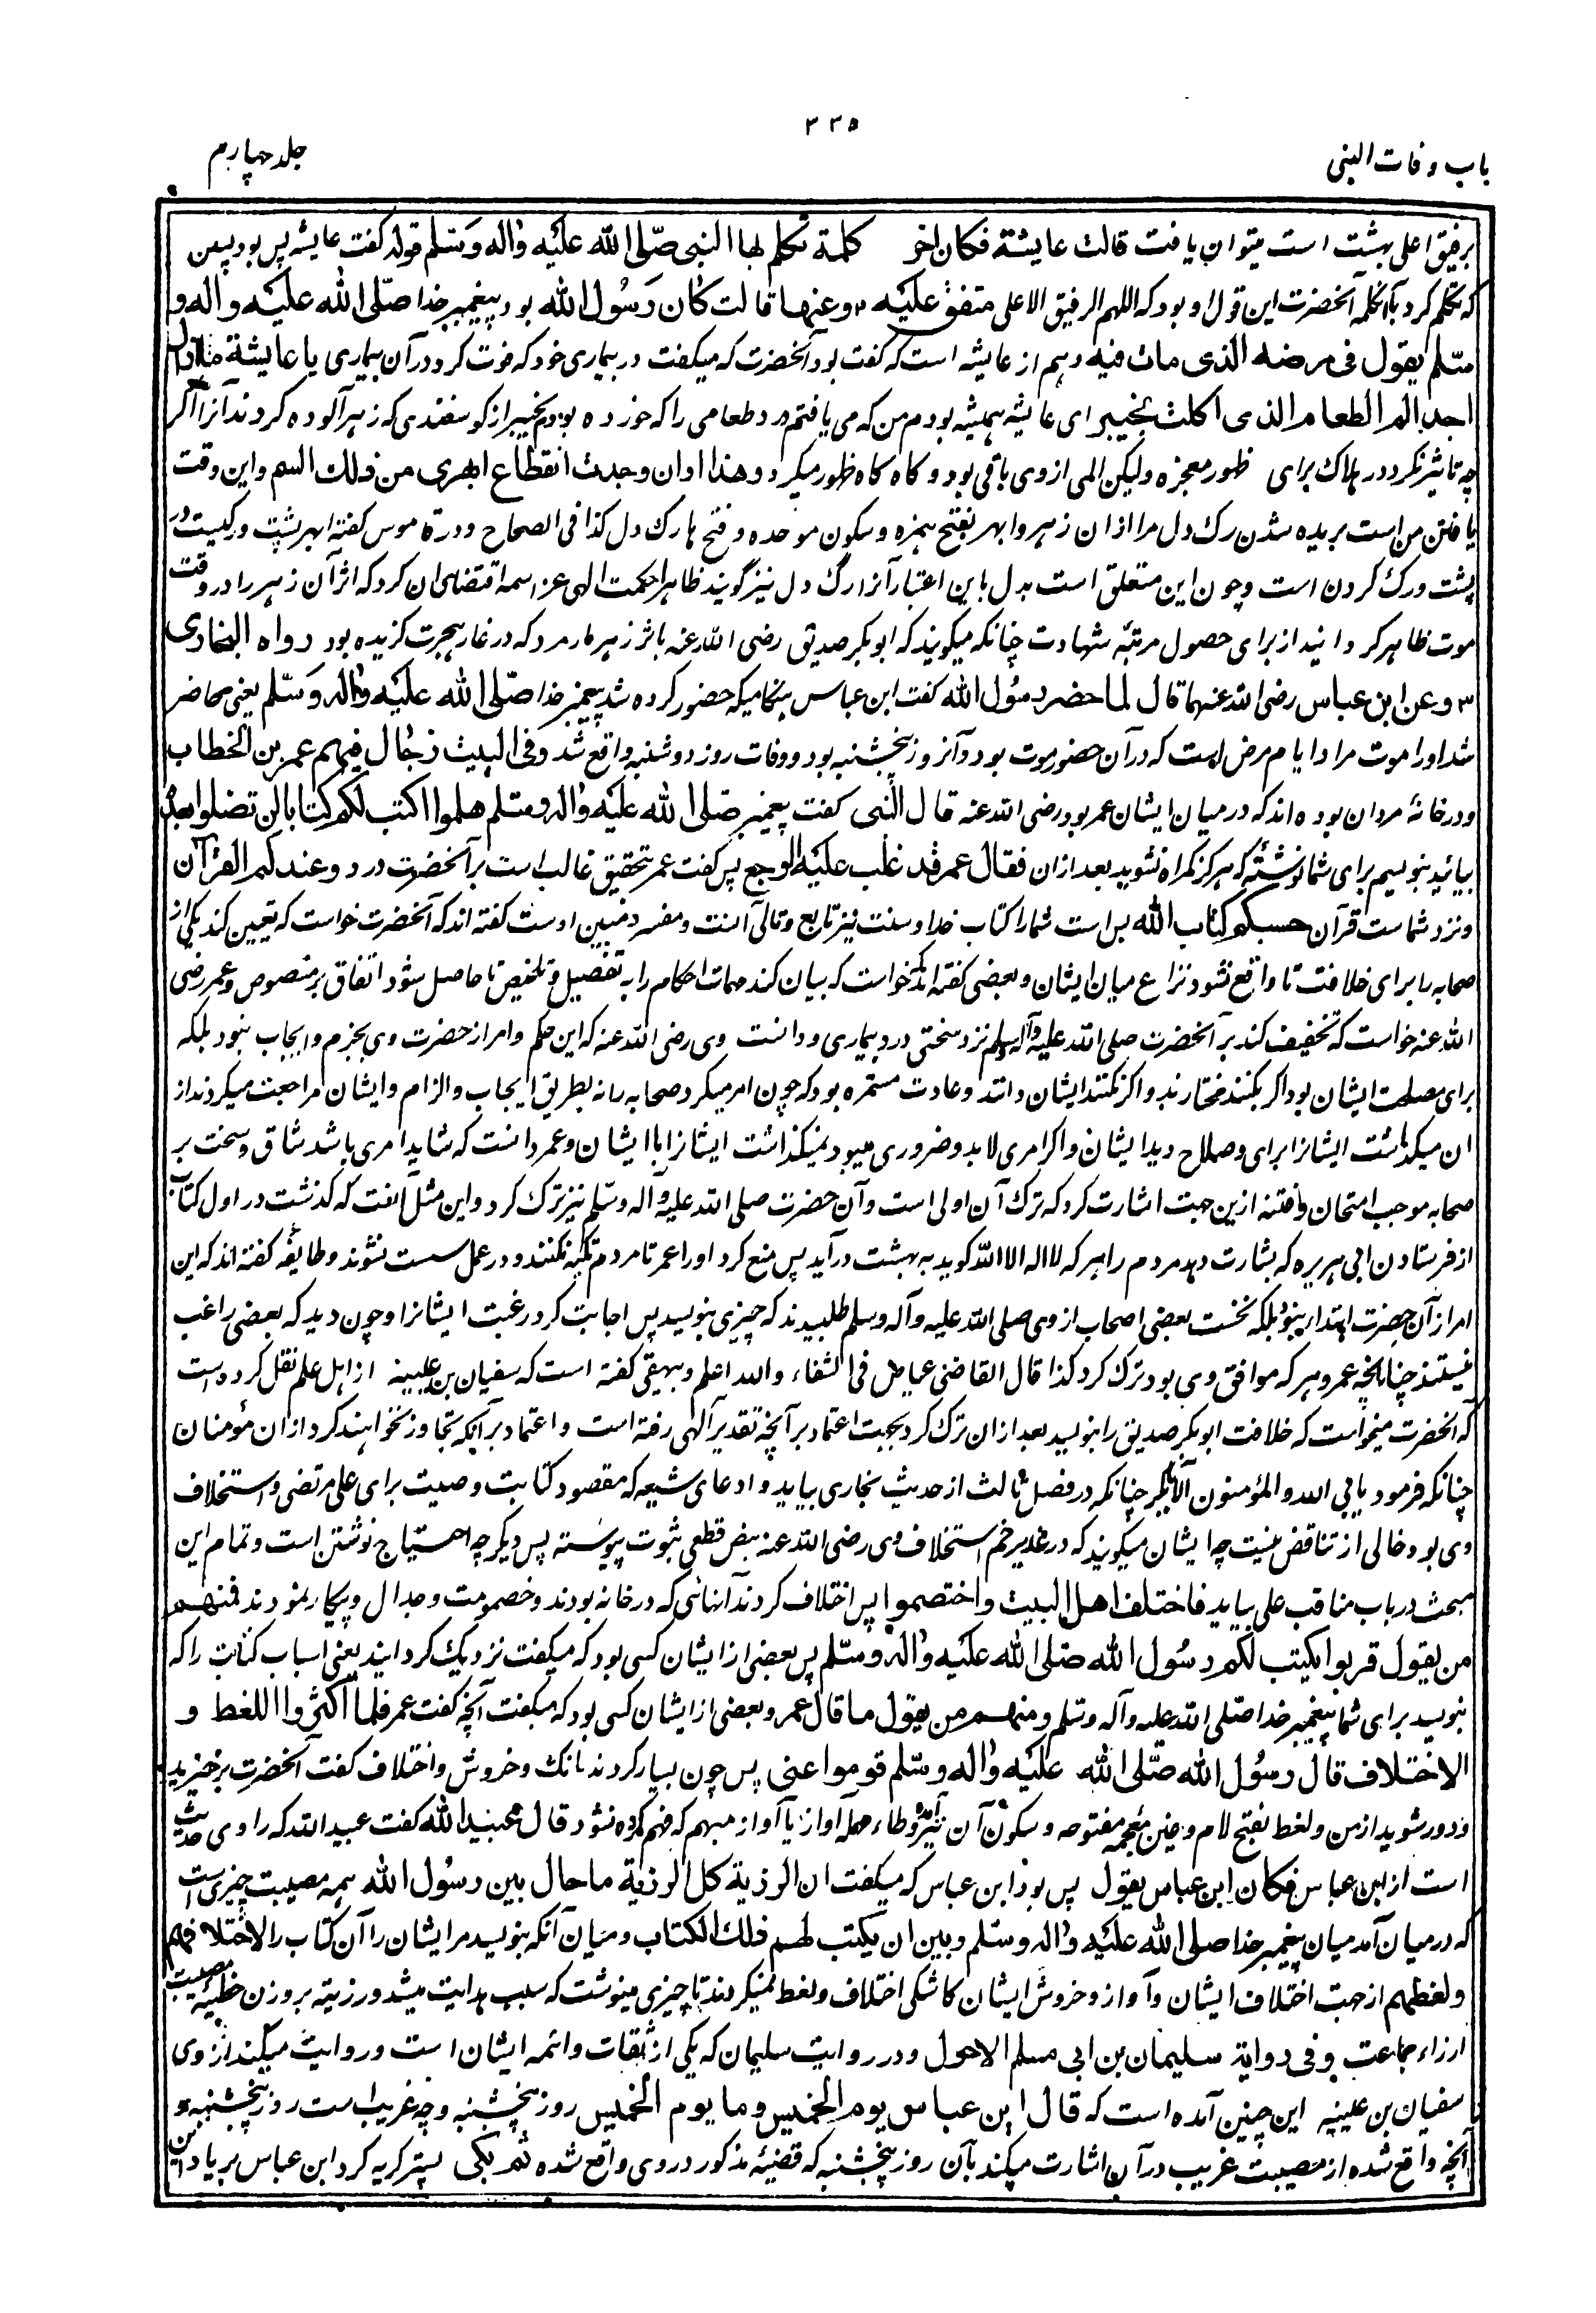 ۳۳۵
باب وفات النبی
جلد چهارم
برفیق اعلی بهشت است میتوان یافت قالت عایشة فکان اخر کلمة تکلم بها النبی صلی الله علیه واله وسلم قوله گفت عایشه پس بود پسین
که تکلم کرد بآن کلمه آنحضرت این قول او بود که اللهم الرفیق الاعلی متفق علیه ۲ وعنها قالت کان رسول الله بود پیغمبر خدا صلی الله علیه واله و
سلم یقول فی مرضه الذی مات فیه وهم از عایشه است که گفت بود آنحضرت که میگفت در بیماری خود که فوت کرد در آن بیماری یا عایشة ما ازال
اجد الم الطعام الذی اکلت بخیبر ای عایشه همیشه بودم من که می یافتم درد طعامی را که خورده بودم بخیبر از گوسفندی که زهر آلوده کردند آنرا اگر
چه تاثیر نکرد در هلاک برای ظهور معجزه ولیکن المی از وی باقی بود و گاه گاه ظهور میکرد وهذا اوان وجدت انقطاع ابهری من ذلك السم واین وقت
یافتن من است بریده شدن رگ دل مرا ازان زهر وابهر بفتح همزه وسکون موحده وفتح ها رگ دل کذا فی الصحاح ودر قاموس گفته ابهر پشت ورگیست در
پشت ورگ گردن است وچون این متعلق است بدل باین اعتبار آنرا رگ دل نیز گویند ظاهرا حکمت الهی عز اسمه اقتضای ان کرد که اثر آن زهر را در وقت
موت ظاهر گردانید از برای حصول مرتبهٔ شهادت چنانکه میگویند که ابوبکر صدیق رضی الله عنه باثر زهر مار مرد که در غار هجرت گزیده بود رواه البخاری
۳ وعن ابن عباس رضی الله عنهما قال لما حضر رسول الله گفت ابن عباس هنگامیکه حضور کرده شد پیغمبر خدا صلی الله علیه واله وسلم یعنی حاضر
شد اورا موت مراد ایام مرض است که در آن حضور موت بود وآنروز پنجشنبه بود ووفات روز دوشنبه واقع شد وفی البیت رجال فیهم عمر بن الخطاب
ودر خانهٔ مردان بوده اند که در میان ایشان عمر بود رضی الله عنه قال النبی گفت پیغمبر صلی الله علیه واله وسلم هلموا اکتب لکم کتابا لن تضلوا بعده
بیائید بنویسم برای شما نوشتهٔ که هرگز گمراه نشوید بعد ازان فقال عمر قد غلب علیه الوجع پس گفت عمر بتحقیق غالب است بر آنحضرت درد وعندکم القرآن
ونزد شما ست قرآن حسبکم کتاب الله بس است شما را کتاب خدا وسنت نیز تابع وتالی آنست ومفسر ومبین اوست گفته اند که آنحضرت خواست که تعیین کند یکی از
صحابه را برای خلافت تا واقع نشود نزاع میان ایشان وبعضی گفته اند که خواست که بیان کند مهمات احکام را به تفصیل وتلخیص تا حاصل شود اتفاق بر منصوص وعمر رضی
الله عنه خواست که تخفیف کند بر آنحضرت صلی الله علیه وآله وسلم نزد سختی درد وبیماری ودانست وی رضی الله عنه که این حکم وامر از حضرت وی بجزم وایجاب نبود بلکه
برای مصلحت ایشان بود اگر بکنند مختارند واگر نکنند ایشان دانند وعادت مستمره بود که چون امر میکرد صحابه را نه بطریق ایجاب والزام وایشان مراجعت میکردند از
ان میگذاشت ایشانرا برای وصلاح دید ایشان واگر امری لابد وضروری میبود نمیگذاشت ایشانرا با ایشان وعمر دانست که شاید امری باشد شاق وسخت بر
صحابه موجب امتحان وفتنه ازین جهت اشارت کرد که ترک آن اولی است وآن حضرت صلی الله علیه وآله وسلم نیز ترک کرد واین مثل آنست که گذشت در اول کتاب
از فرستادن ابی هریره که بشارت دهد مردم را هر که لا اله الا الله گوید به بهشت درآید پس منع کرد اورا عمر تا مردم تکیه نکنند ودر عمل سست نشوند وطایفه گفته اند که این
امر از آن حضرت ابتداء نبود بلکه نخست بعضی اصحاب از وی صلی الله علیه وآله وسلم طلبیدند که چیزی بنویسد پس اجابت کرد رغبت ایشانرا وچون دید که بعضی راغب
نیستند چنانچه عمر وهر که موافق وی بود ترک کرد کذا قال القاضی عیاض فی الشفاء والله اعلم وبیهقی گفته است که سفیان بن عیینه از اهل علم نقل کرده است
که آنحضرت میخواست که خلافت ابوبکر صدیق را بنویسد بعد ازان ترک کرد بجهت اعتماد بر آنچه تقدیر آلهی رفته است واعتماد بر آنکه تجاوز نخواهند کرد ازان مؤمنان
چنانکه فرمود یابی الله والمؤمنون الا ابابکر چنانکه در فصل ثالث از حدیث بخاری بیاید وادعای شیعه که مقصود کتابت وصیت برای علی مرتضی واستخلاف
وی بود خالی از تناقض نیست چه ایشان میگویند که در غدیر خم استخلاف وی رضی الله عنه بنص قطعی ثبوت پیوسته پس دیگر چه احتیاج نوشتن است وتمام این
مبحث در باب مناقب علی بیاید فاختلف اهل البیت واختصموا پس اختلاف کردند آنهائی که در خانه بودند وخصومت وجدال وپیکار نمودند فمنهم
من یقول قربوا یکتب لکم رسول الله صلی الله علیه واله وسلم پس بعضی از ایشان کسی بود که میگفت نزدیک گردانید یعنی اسباب کتابت را که
بنویسد برای شما پیغمبر خدا صلی الله علیه وآله وسلم ومنهم من یقول ما قال عمر وبعضی از ایشان کسی بود که میگفت آنچه گفت عمر فلما اکثروا اللغط و
الاختلاف قال رسول الله صلی الله علیه واله وسلم قوموا عنی پس چون بسیار کردند بانک وخروش واختلاف گفت آنحضرت برخیزید
ودور شوید از من ولغط بفتح لام وغین معجمه مفتوحه وسکون آن نیز آمده وطاء مهمله آواز یا آواز مبهم که فهم کرده نشود قال عبید الله گفت عبید الله که راوی حدیث
است از ابن عباس فکان ابن عباس یقول پس بود ابن عباس که میگفت ان الرزیة کل الرزیة ما حال بین رسول الله همه مصیبت چیزی است
که در میان آمد میان پیغمبر خدا صلی الله علیه واله وسلم وبین ان یکتب لهم ذلك الکتاب ومیان آنکه بنویسد مر ایشان را آن کتاب را لاختلافهم
ولغطهم از جهت اختلاف ایشان وآواز وخروش ایشان کاشکی اختلاف ولغط نمیکردند تا چیزی مینوشت که سبب هدایت میشد ورزیئه بروزن خطیئه مصیبت
ارزاء جماعت وفی روایة سلیمان بن ابی مسلم الاحول ودر روایت سلیمان که یکی از ثقات وائمه ایشان است وروایت میکند از وی
سفیان بن عیینه این چنین آمده است که قال ابن عباس یوم الخمیس وما یوم الخمیس روز پنجشنبه وچه غریب ست روز پنجشنبه و
آنچه واقع شده از مصیبت غریب در آن اشارت میکند بآن روز پنجشنبه که قضیهٔ مذکور در وی واقع شده ثم بکی پستر گریه کرد ابن عباس بر یاد این